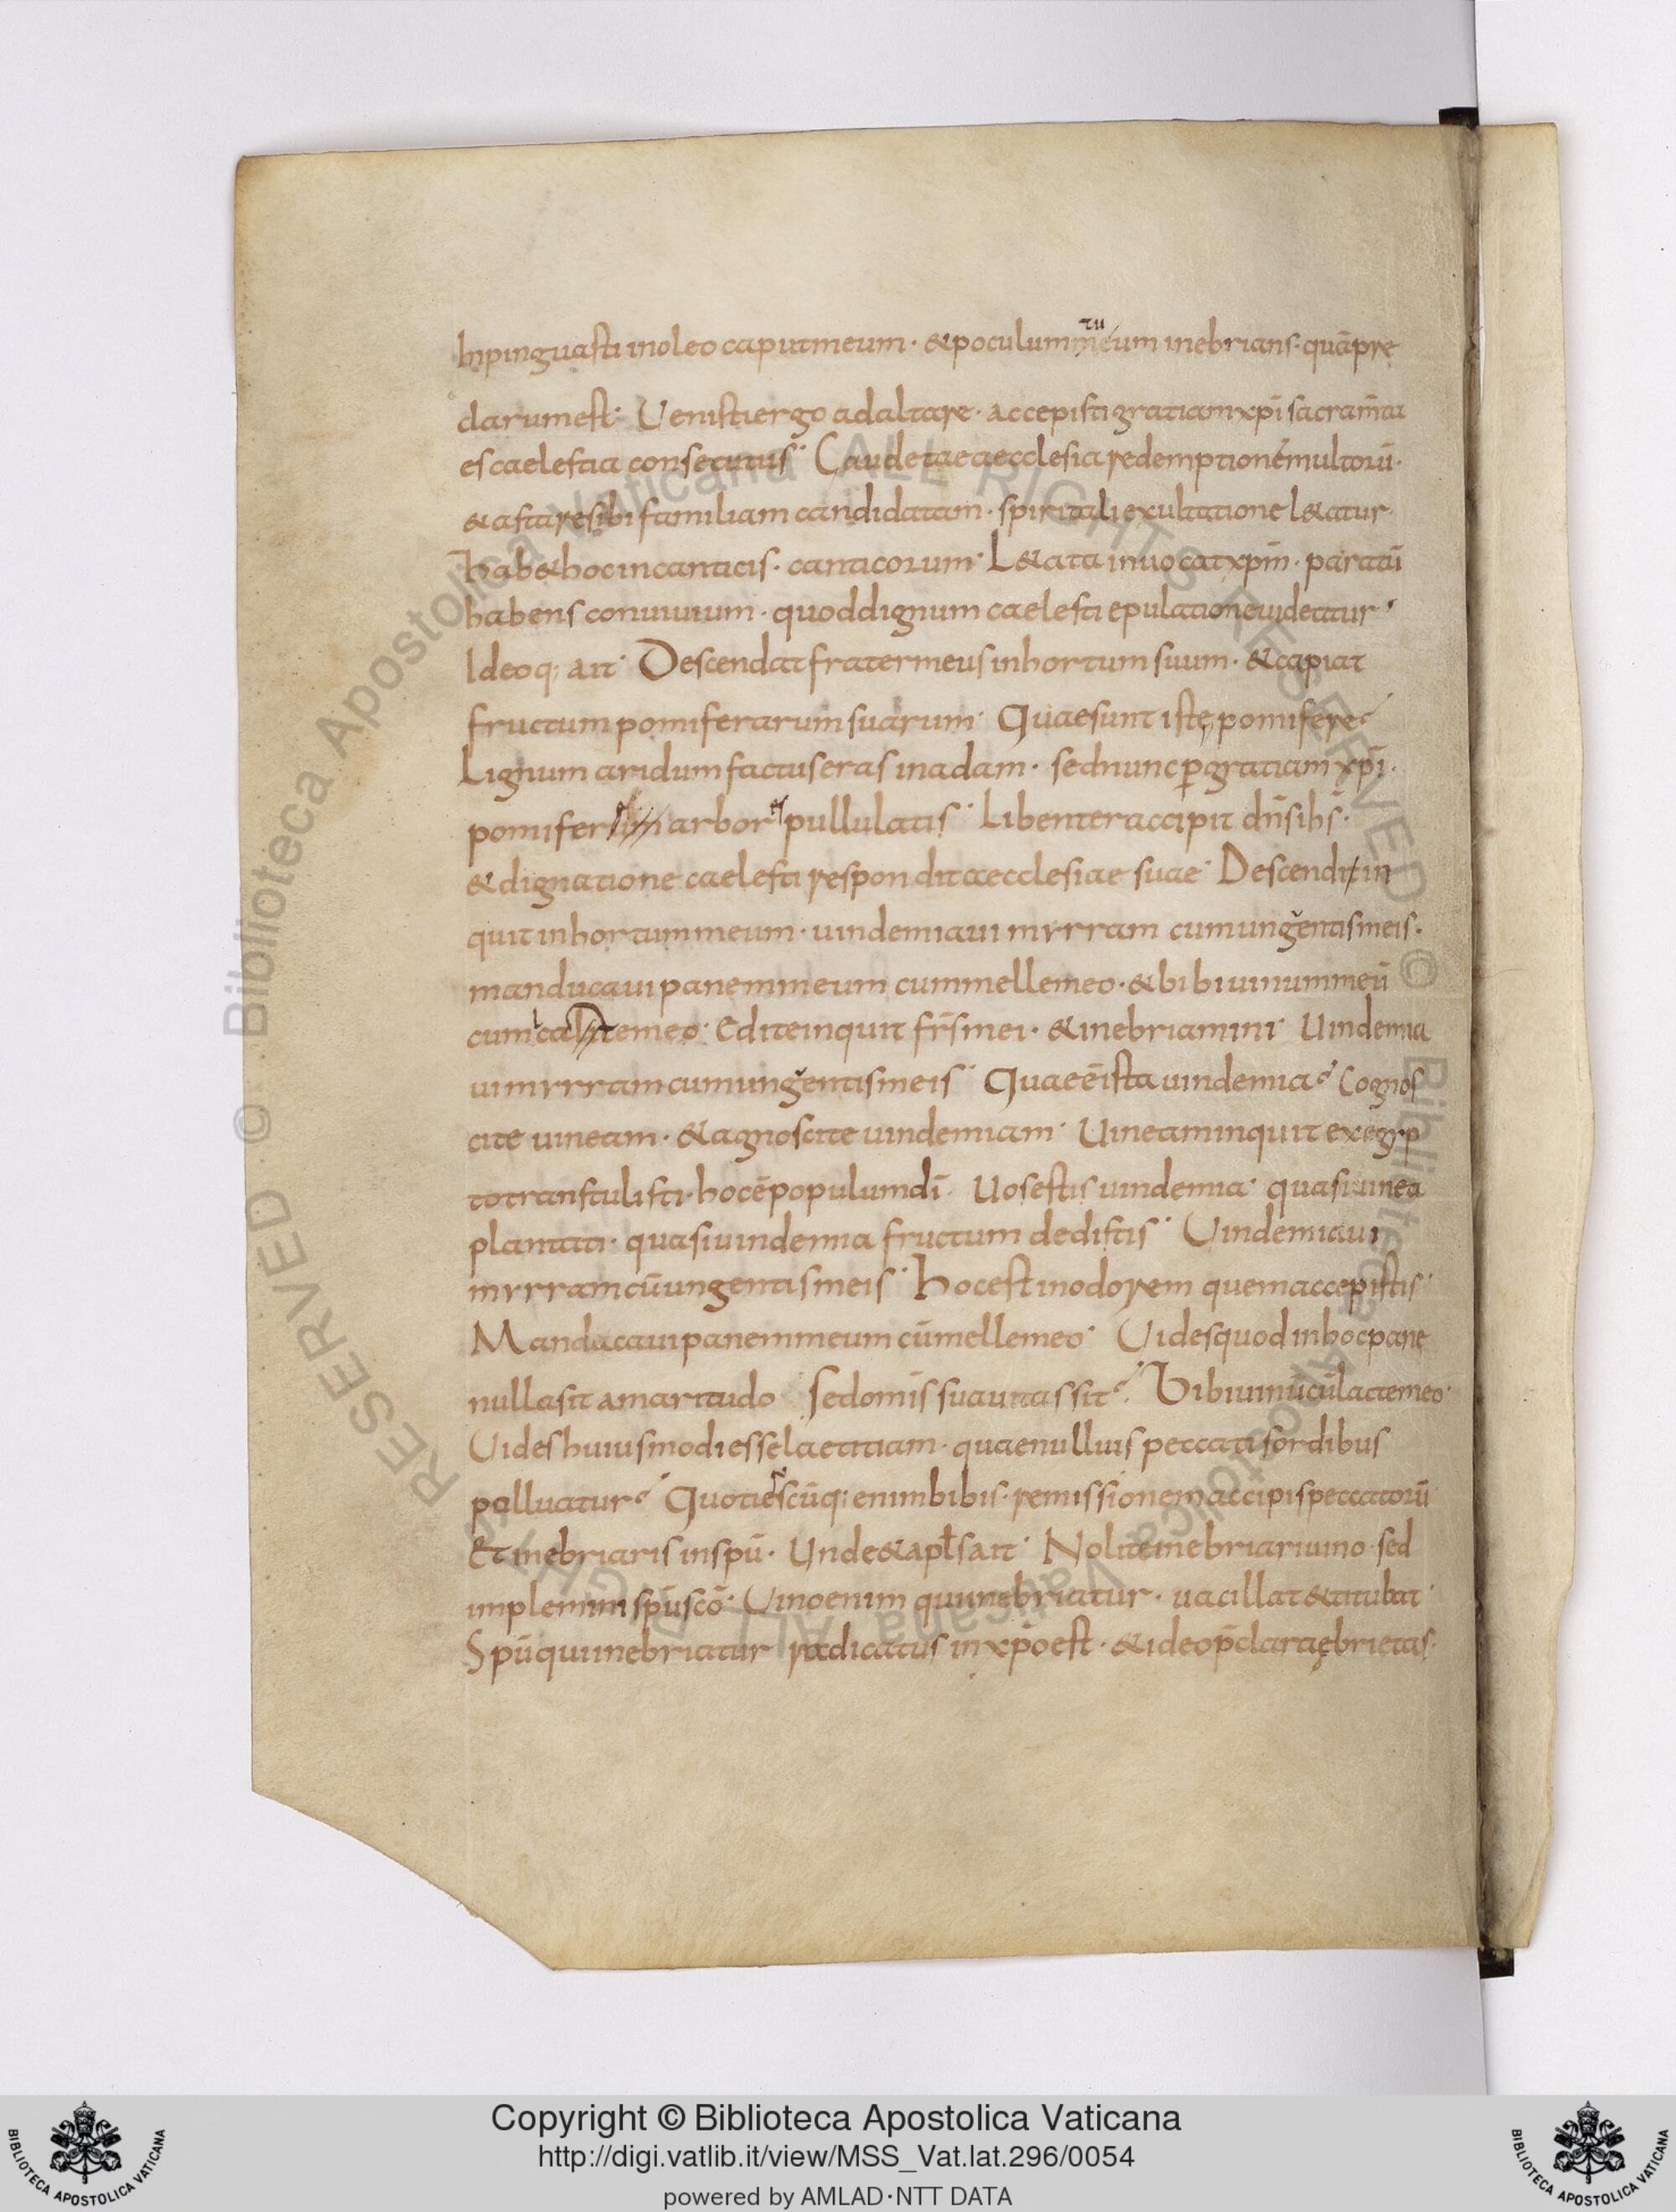 Inpinguasti inoleo caputmeum · &poculum meum inebrians · quāpre
tu
clarumest · Uenistiergo adaltare · accepisti gratiamxp̄i sacram̄ta
es caelestia consecutus · Gaudetaeaecclesia redemptionemultorū ·
&astaresibi familiam candidatam · spiritali exultatione l&atur ·
hab&hocincanticis · canticorum · L&ata inuocatxp̄m · paratū
habens conuiuium · quoddignum caelesti epulationeuideatur ·
Ideoq; ait · Descendatfratermeusinhortum suum · &capiat
fructum pomiferarum suarum · Quaesunt istę pomifere
Lignum aridumfactuseras inadam · sednunc ꝑgratiam xp̄i ·
pomiferum arbores pullulatis · Libenteraccipit dn̄s ih̄s ·
&dignatione caelesti respondit aecclesiae suae · Descendit in
quit inhortummeum · uindemiaui myrram cumungentismeis ·
manducaui panemmeum cummellemeo · &bibi uinummeū
cum lactemeo · Editeinquit fr̄smei · &inebriamini · Uindemia
uimyrramcumungentismeis · Quaeēista uindemia Cognos
cite uineam · &agnoscite uindemiam · Uineaminquit exęgyp
totranstulisti · hocēpopulumdī · Uosestis uindemia · quasiuinea
plantati · quasiuindemia fructum dedistis · Uindemiaui
myrramcūungentismeis · hocestinodorem quemaccepistis ·
Manducauipanemmeum cūmellemeo · Uidesquod inhocpane
nullasit amaritudo sedomīs suauitas sit · Bibiuinūcūlactemeo ·
Uides huiusmodiesselaetitiam · quaenulluis peccatisordibus
polluatur Quotiescūq; enimbibis · remissionemaccipispeccatorū
Et inebriaris inspū · Unde&apłsait · Noliteinebriariuino · sed
implemini spūscō · Uinoenim quiinebriatur · uacillat&titubat ·
Spūquiinebriatur radicatus inxp̄oest · &ideop̄claraębrietas ·
© Biblioteca Apostolica Vaticana ALL RIGHTS RESERVED
Copyright © Biblioteca Apostolica Vaticana
http://digi.vatlib.it/view/MSS_Vat.lat.296/0054
powered by AMLAD·NTT DATA
BIBLIOTECA APOSTOLICA VATICANA
BIBLIOTECA APOSTOLICA VATICANA